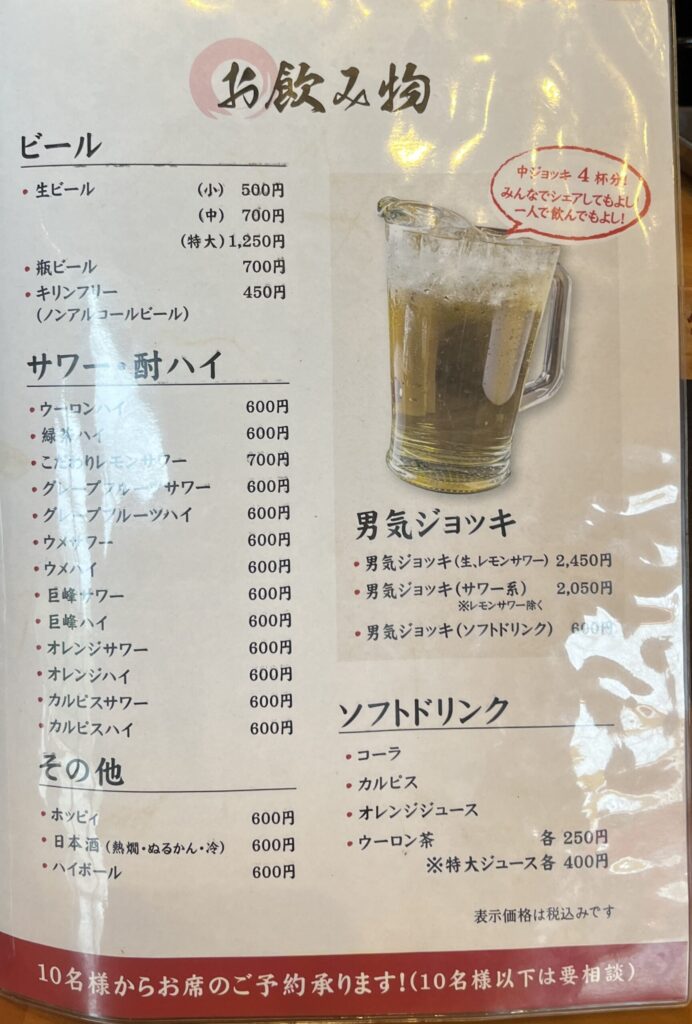 お飲み物
ビール
・生ビール (小) 500円
(中) 700円
(特大) 1,250円
・瓶ビール 700円
・キリンフリー 450円
(ノンアルコールビール)
サワー・酎ハイ
・ウーロンハイ 600円
・緑茶ハイ 600円
・こだわりレモンサワー 700円
・グレープフルーツサワー 600円
・グレープフルーツハイ 600円
・ウメサワー 600円
・ウメハイ 600円
・巨峰サワー 600円
・巨峰ハイ 600円
・オレンジサワー 600円
・オレンジハイ 600円
・カルピスサワー 600円
・カルピスハイ 600円
その他
・ホッピィ 600円
・日本酒 (熱燗・ぬるかん・冷) 600円
・ハイボール 600円
中ジョッキ 4 杯分!
みんなでシェアしてもよし
一人で飲んでもよし!
男気ジョッキ
・男気ジョッキ (生、レモンサワー) 2,450円
・男気ジョッキ (サワー系) 2,050円
※レモンサワー除く
・男気ジョッキ (ソフトドリンク) 600円
ソフトドリンク
・コーラ
・カルピス
・オレンジジュース
・ウーロン茶 各 250円
※特大ジュース各 400円
表示価格は税込みです
10名様からお席のご予約承ります!(10名様以下は要相談)